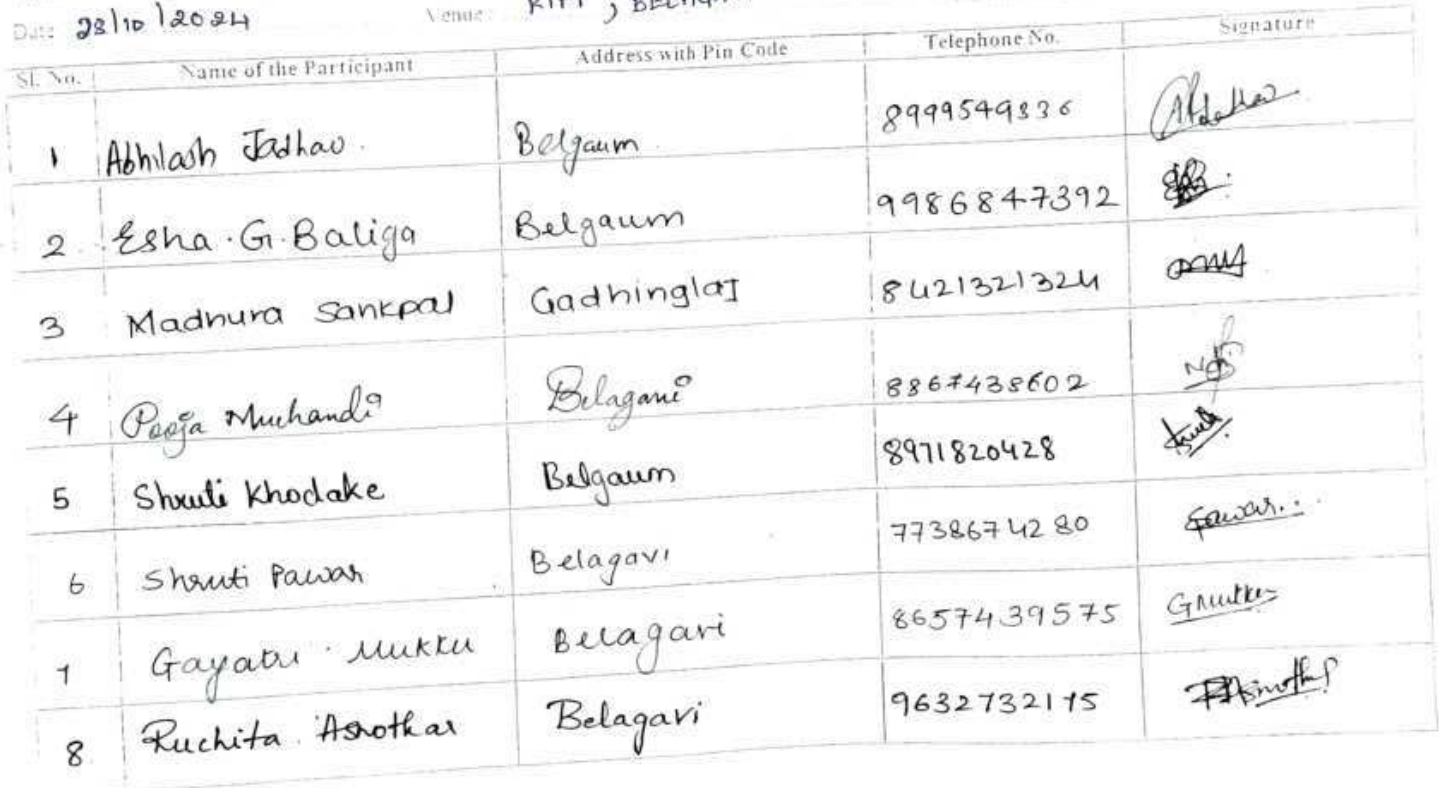 Date: 28/10/2024 Venue:
Sl. No. Name of the Participant Address with Pin Code Telephone No. Signature
1 Abhilash Jadhav. Belgaum. 8999549836
2. Esha.G.Baliga Belgaum 9986847392
3 Madhura Sankpal Gadhinglaj 8421321324
4 Pooja Muchandi Belagavi 8867438602
5 Shruti Khodake Belgaum 8971820428
6 Shruti Pawar Belagavi 7738674280 Pawar..
7 Gayatri Mukku Belagavi 8657439575 GMukku
8. Ruchita Belagavi 9632732175